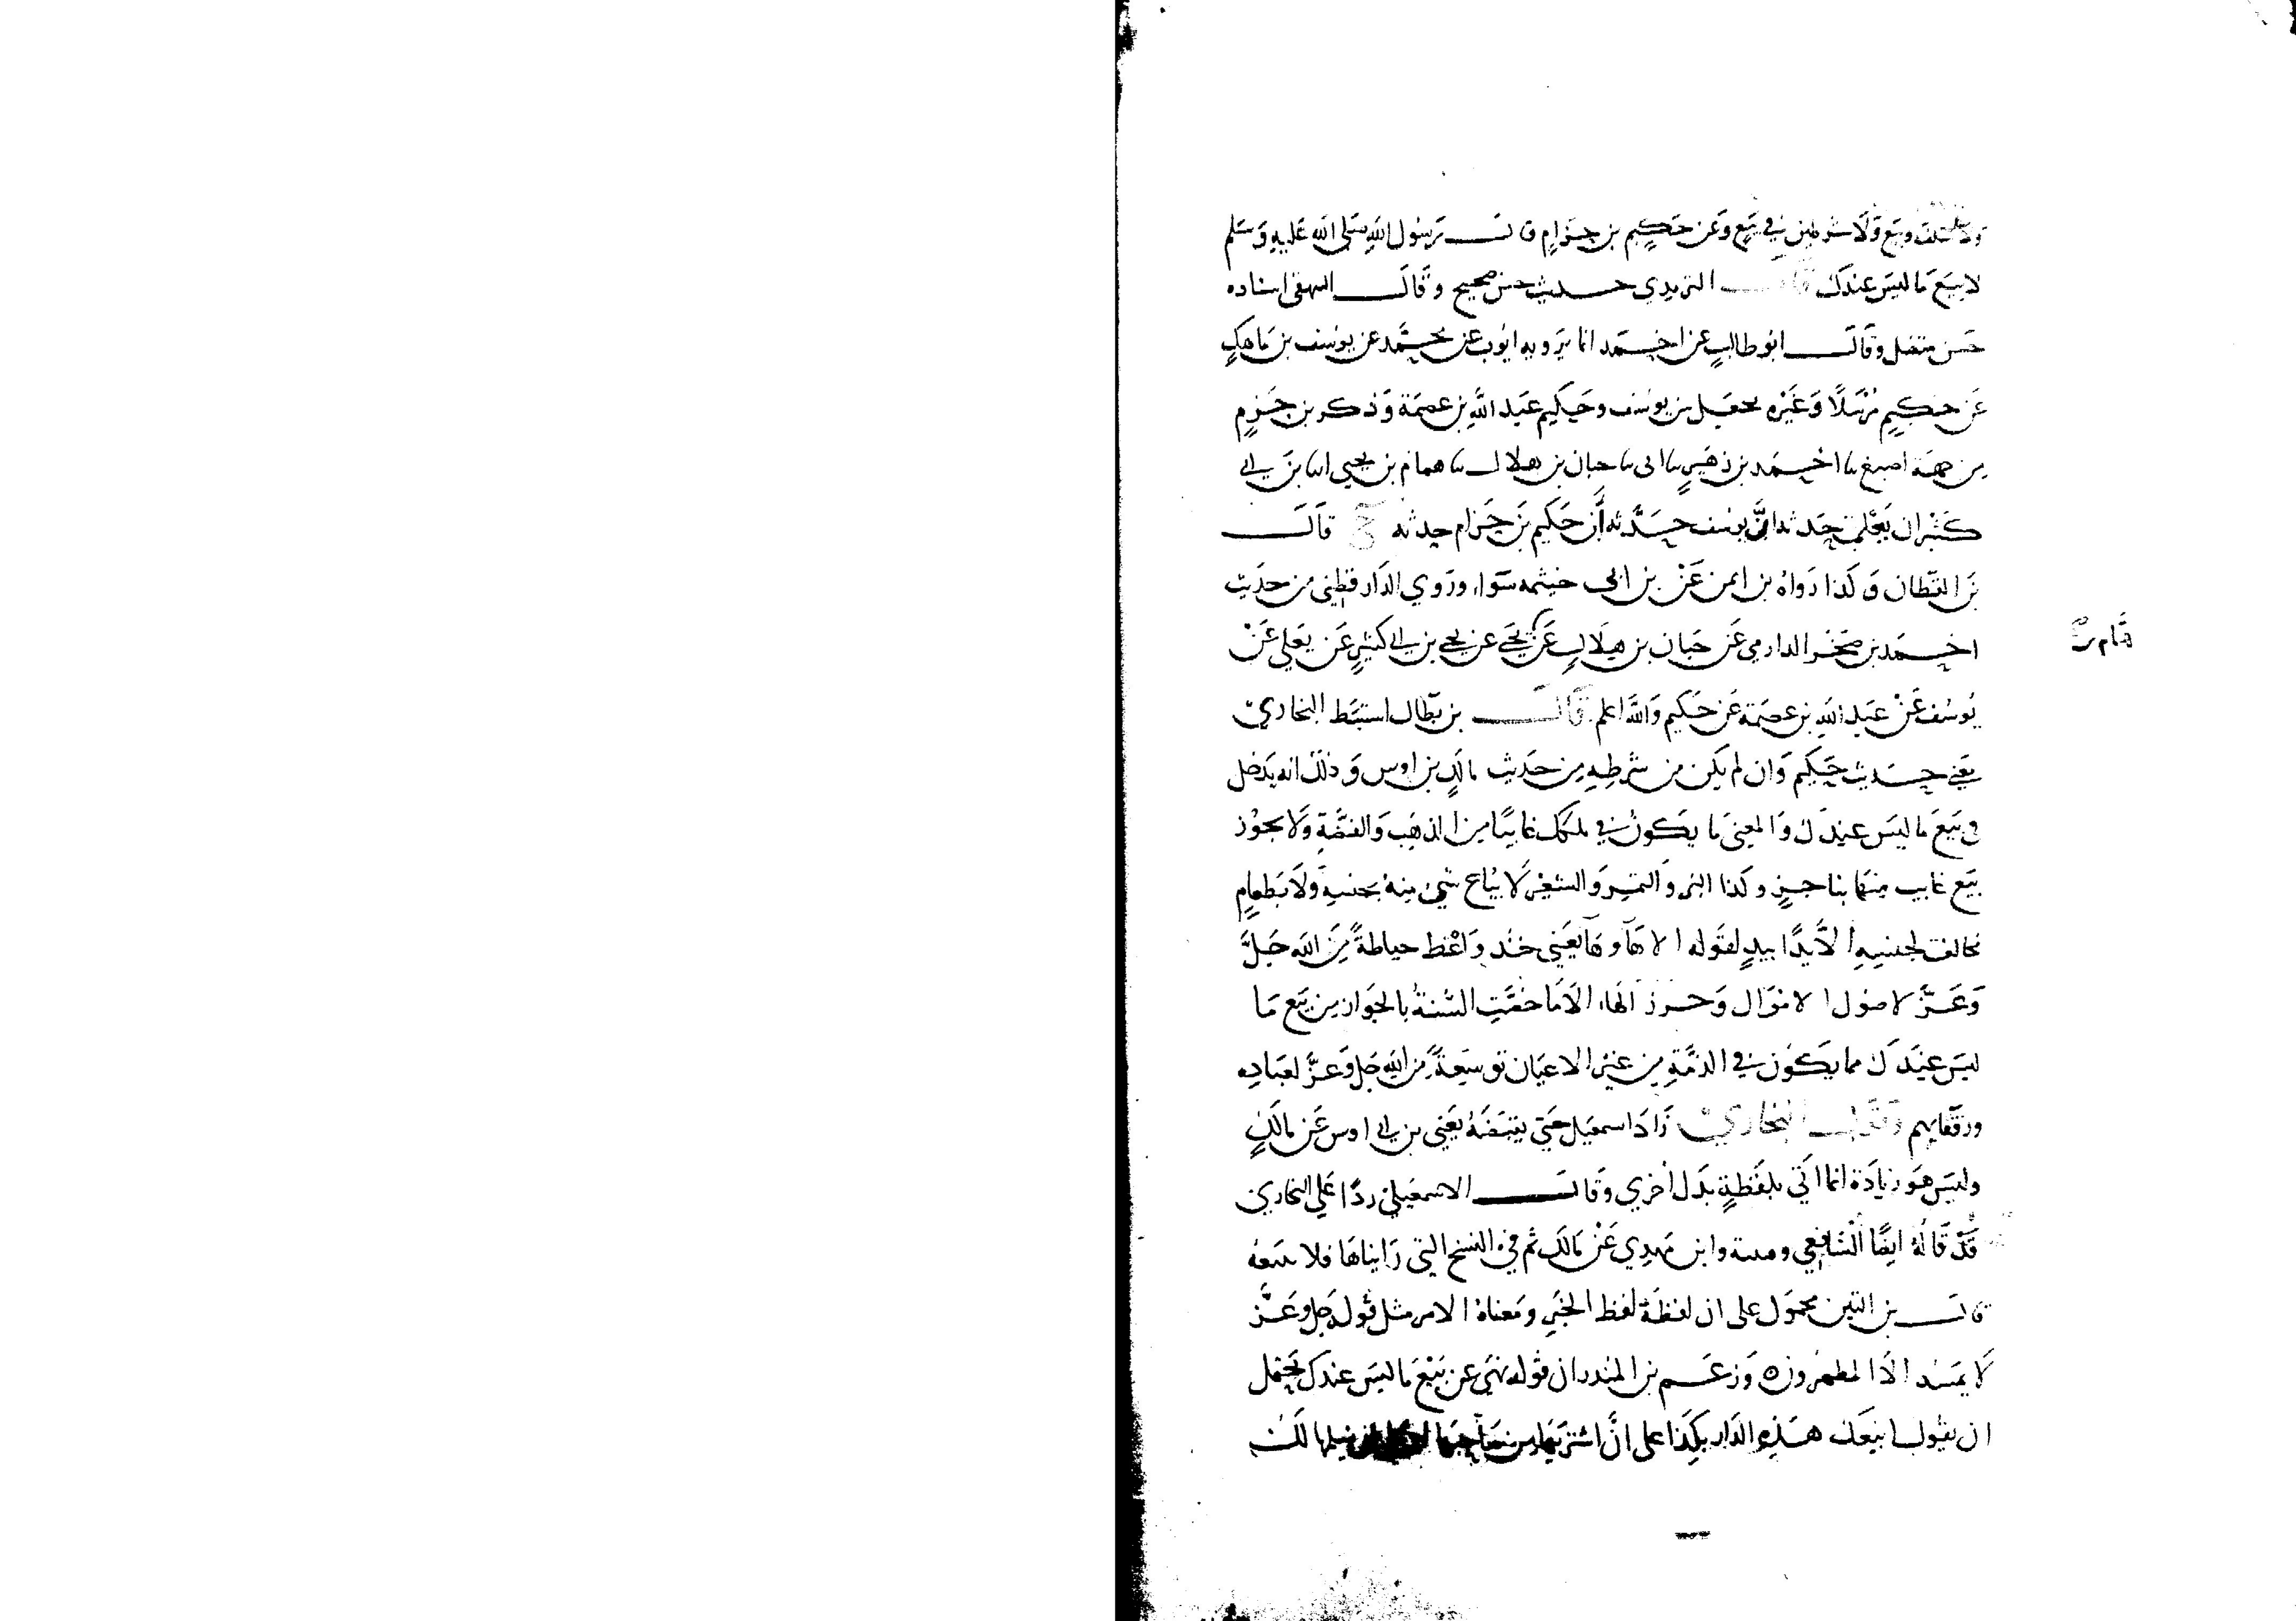 ولا سلف وبيع ولا شرطين في بيع وعن حكيم بن حزام قال رسول الله صلى الله عليه وسلم
لا يبع ما ليس عندك قال الترمدي حديث حسن صحيح وقال البيهقي اسناده
حسن متصل وقال ابو طالب عن احمد انما يرويه ايوب عن محمد عن يوسف بن ماهك
عن حكيم مرسلا وغيره يجعل بين يوسف وحكيم عبد الله بن عصمة وذكر بن حزم
من جهة اصبغ نا احمد بن زهير نا ابي نا حبان بن هلال نا همام بن يحيي نا بن ابي
كثير ان يعلى حدثه ان يوسف حدثه أن حكيم بن حزام حدثه ح قال
بن القطان وكذا رواه بن ايمن عن بن ابي خيثمه سواء وروي الدارقطني من حديث
احمد بن صخر الدارمي عن حبان بن هلال عن يحيي عن يحيي بن ابي كثير عن يعلي عن
همام
يوسف عن عبد الله بن عصمة عن حكيم والله اعلم قال بن بطال استنبط البخاري
يعني حديث حكيم وان لم يكن من شرطه من حديث مالك بن اوس وذلك انه يدخل
في بيع ما ليس عندك والمعنى ما يكون في ملكك غايبا من الذهب والفضة ولا يجوز
بيع غايب منهما بناجز وكذا البر والتمر والشعير لا يباع شيء منه بجنسه ولا بطعام
مخالف لجنسه الا يدا بيد لقوله الا هآ وهآ يعني خذ واعط حياطة من الله جل
وعز لاصول الاموال وحرز الها، الا ما خصت السنة بالجواز من بيع ما
ليس عندك مما يكون في الذمة من غير الاعيان توسعة من الله جل وعز لعباده
ورفقا بهم وقول البخاري زاد اسمعيل حتى يقبضه يعني بن ابي اوس عن مالك
وليس هو زيادة انما اتي بلفظة بدل اخري وقال الاسمعيلي ردا علي البخاري
قد قاله ايضا الشافعي وقتيبة وابن مهدي عن مالك ثم في النسخ التي رايناها فلا يبيعه
قال بن التين محمول على ان لفظه لفظ الخبر ومعناه الامر مثل قوله جل وعز
لا يمسه الا المطهرون وزعم بن المندر ان قوله نهي عن بيع ما ليس عندك يحتمل
ان يقول ابيعك هذه الدار بكذا على ان اشتريها من صاحبها لك